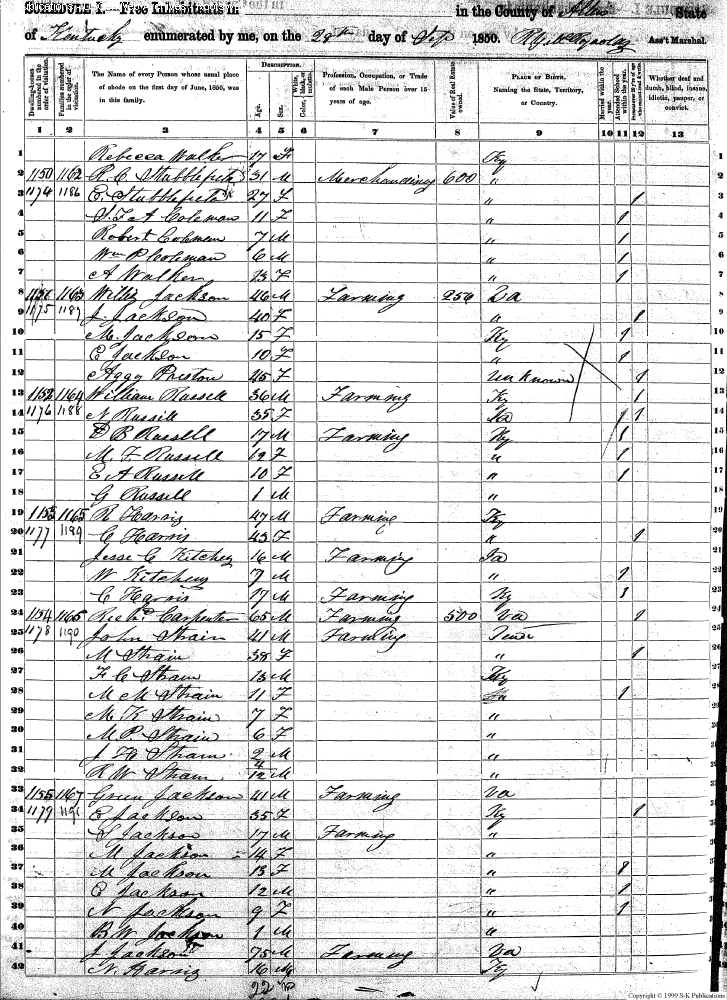 SCHEDULE I.—Free Inhabitants in in the County of State
of Kentucky enumerated by me, on the 28th day of Sep 1850. Ass't Marshal.
Dwelling-houses numbered in the order of visitation.
Families numbered in the order of visitation.
The Name of every Person whose usual place of abode on the first day of June, 1850, was in this family.
DESCRIPTION.
Age.
Sex.
Color, White, black, or mulatto.
Profession, Occupation, or Trade of each Male Person over 15 years of age.
Value of Real Estate owned.
PLACE OF BIRTH, Naming the State, Territory, or Country.
Married within the year.
Attended School within the year.
Persons over 20 y'rs of age who cannot read & write.
Whether deaf and dumb, blind, insane, idiotic, pauper, or convict.
1 2 3 4 5 6 7 8 9 10 11 12 13
1 Rebecca Walker 17 F Ky 1
2 1150 1162 R. C. Stubblefield 31 M Merchandising 600 " 2
3 1174 1186 E. Stubblefield 27 F " 3
4 S. F. A Coleman 11 F " 4
5 Robert Coleman 7 M " 5
6 Wm P. Coleman 6 M " 6
7 A Walker 23 F " 7
8 1151 1163 Willis Jackson 46 M Farming 250 Va 8
9 1175 1187 J. Jackson 40 F " 9
10 M. Jackson 15 F Ky 10
11 E Jackson 10 F " 11
12 Aggy Preston 45 F Unknown 12
13 1152 1164 William Russell 36 M Farming Ky 13
14 1176 1188 N Russell 35 F Va 14
15 B Russell 17 M Farming Ky 15
16 M. F. Russell 12 F " 16
17 E A Russell 10 F " 17
18 G Russell 1 M " 18
19 1153 1165 R Harris 47 M Farming Ky 19
20 1177 1189 C Harris 43 F " 20
21 Jesse C Kitchey 16 M Farming 21
22 W Kitchens 7 M " 22
23 C Harris 17 M Farming Ky 23
24 1154 1166 Carpenter 65 M Farming 500 Va 24
25 1178 1190 John Strain 41 M Farming Tenn 25
26 M Strain 38 F " 26
27 F C Strain 13 M Ky 27
28 M M Strain 11 F 28
29 M. K Strain 7 F " 29
30 M. P. Strain 6 F " 30
31 J H Strain 2 M " 31
32 R W Strain 12 M " 32
33 1155 1167 Green Jackson 41 M Farming Va 33
34 1179 1191 E Jackson 35 F Ky 34
35 S Jackson 17 M Farming " 35
36 M Jackson 14 F " 36
37 M Jackson 13 F " 37
38 E Jackson 12 M " 38
39 N Jackson 9 F " 39
40 B. W Jackson 1 M " 40
41 J Jackson 75 M Farming Va 41
42 N. Harris 16 M Ky 42
Copyright © 1999 S-K Publications